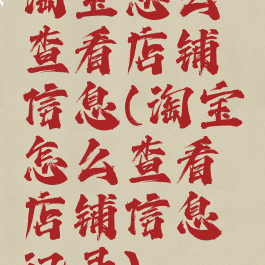 淘宝怎么
查看店铺
信息(淘宝
怎么查看
店铺信息
记录)